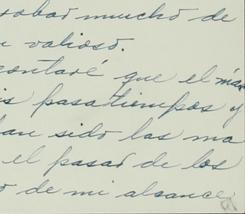 robar mucho de
valioso.
contaré que el más
is pasatiempos y
an sido las ma
el pasar de los
o de mi alcance